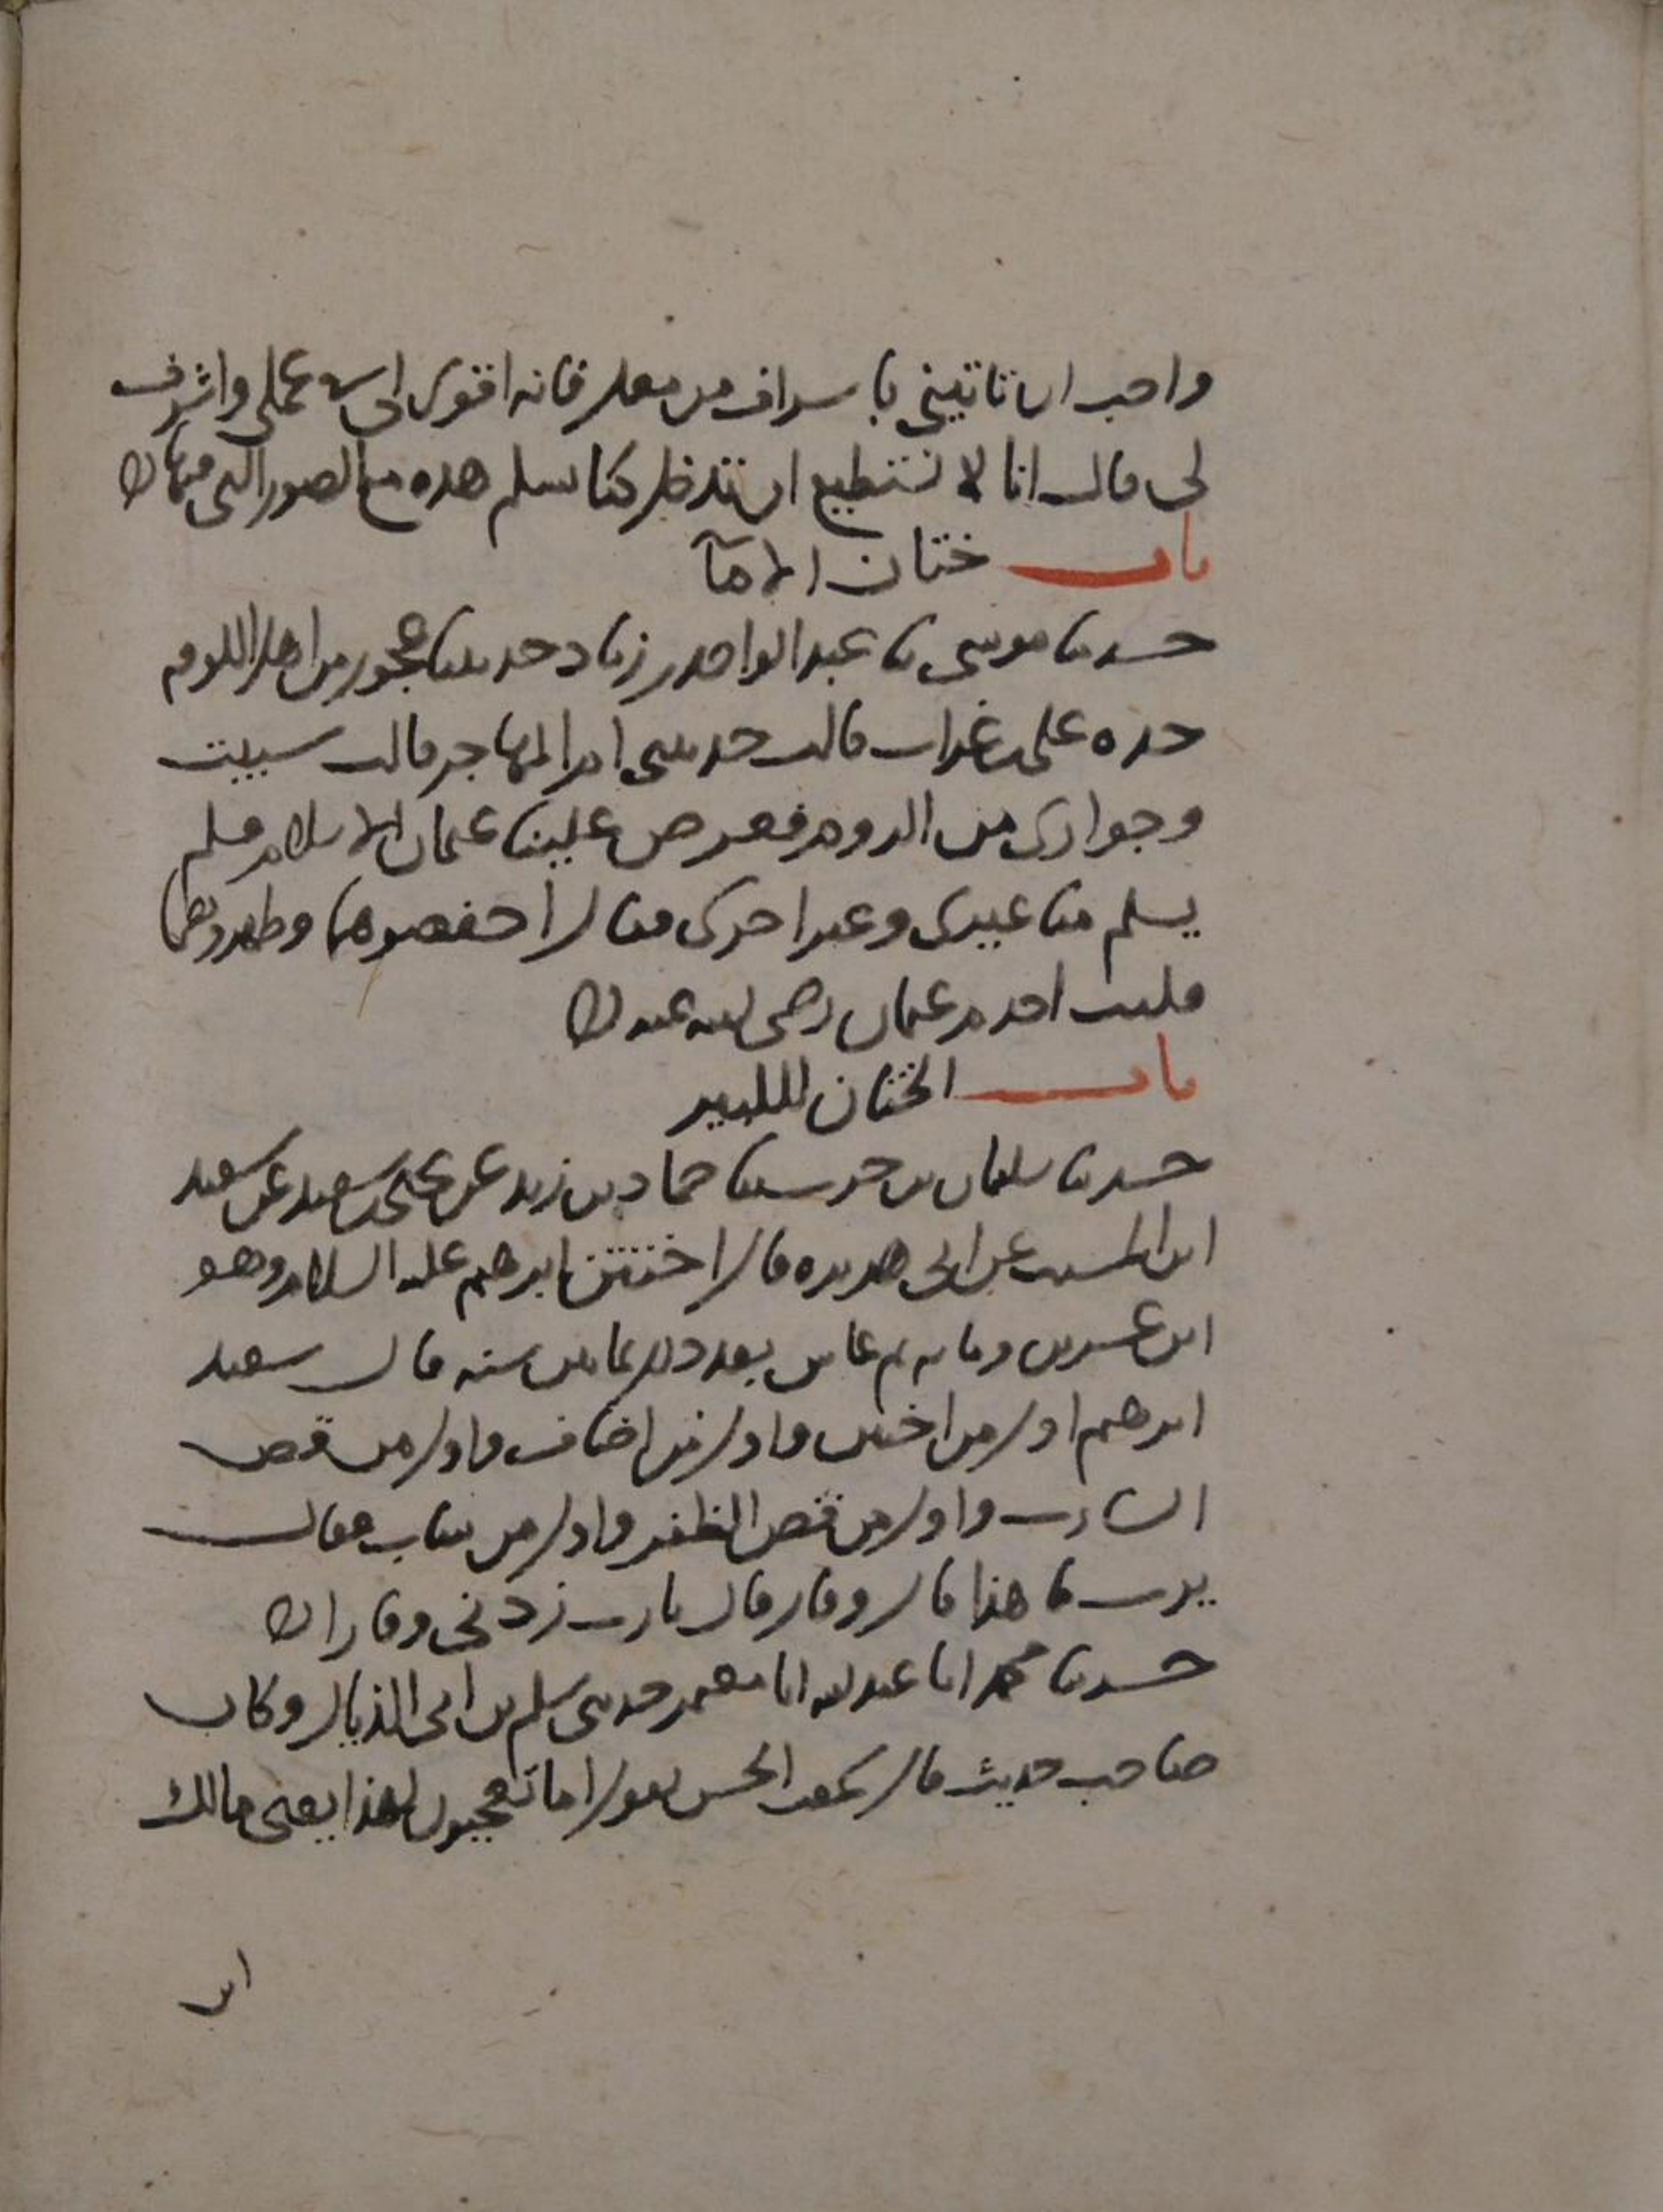 واحب ان تاتيني باسراف من معك فانه اقوى لي في عملي واشرف
لي قال انا لا نستطيع ان ندخل كنائسكم هذه مع الصور التي فيها
باب ختان الاماء
حدثنا موسى نا عبد الواحد بن زياد حدثتنا عجوز من اهل الكوفه
جده علي بن غراب قالت حدثتني ام المهاجر قالت سبيت
وجواري من الروم فعرض علينا عثمان الاسلام فلم
يسلم منا غيري وغير اخرى فقال اخفضوهما وطهروهما
فكنت اخدم عثمان رضي الله عنه
باب الختان للكبير
حدثنا سليمان بن حرب ثنا حماد بن زيد عن يحيى بن سعيد عن سعيد
ابن المسيب عن ابي هريره قال اختتن ابرهيم عليه السلام وهو
ابن عشرين ومايه ثم عاش بعد ذلك ثمانين سنه قال سعيد
ابرهيم اول من اختتن واول من اضاف واول من قص
الشارب واول من قص الظفر واول من شاب فقال
يرب ما هذا قال وقار قال يا رب زدني وقارا
حدثنا محمد انا عبد الله انا معمر حدثني سلم بن ابي الذيال وكان
صاحب حديث قال سمعت الحسن يقول اما تعجبون لهذا يعني مالك
ابن